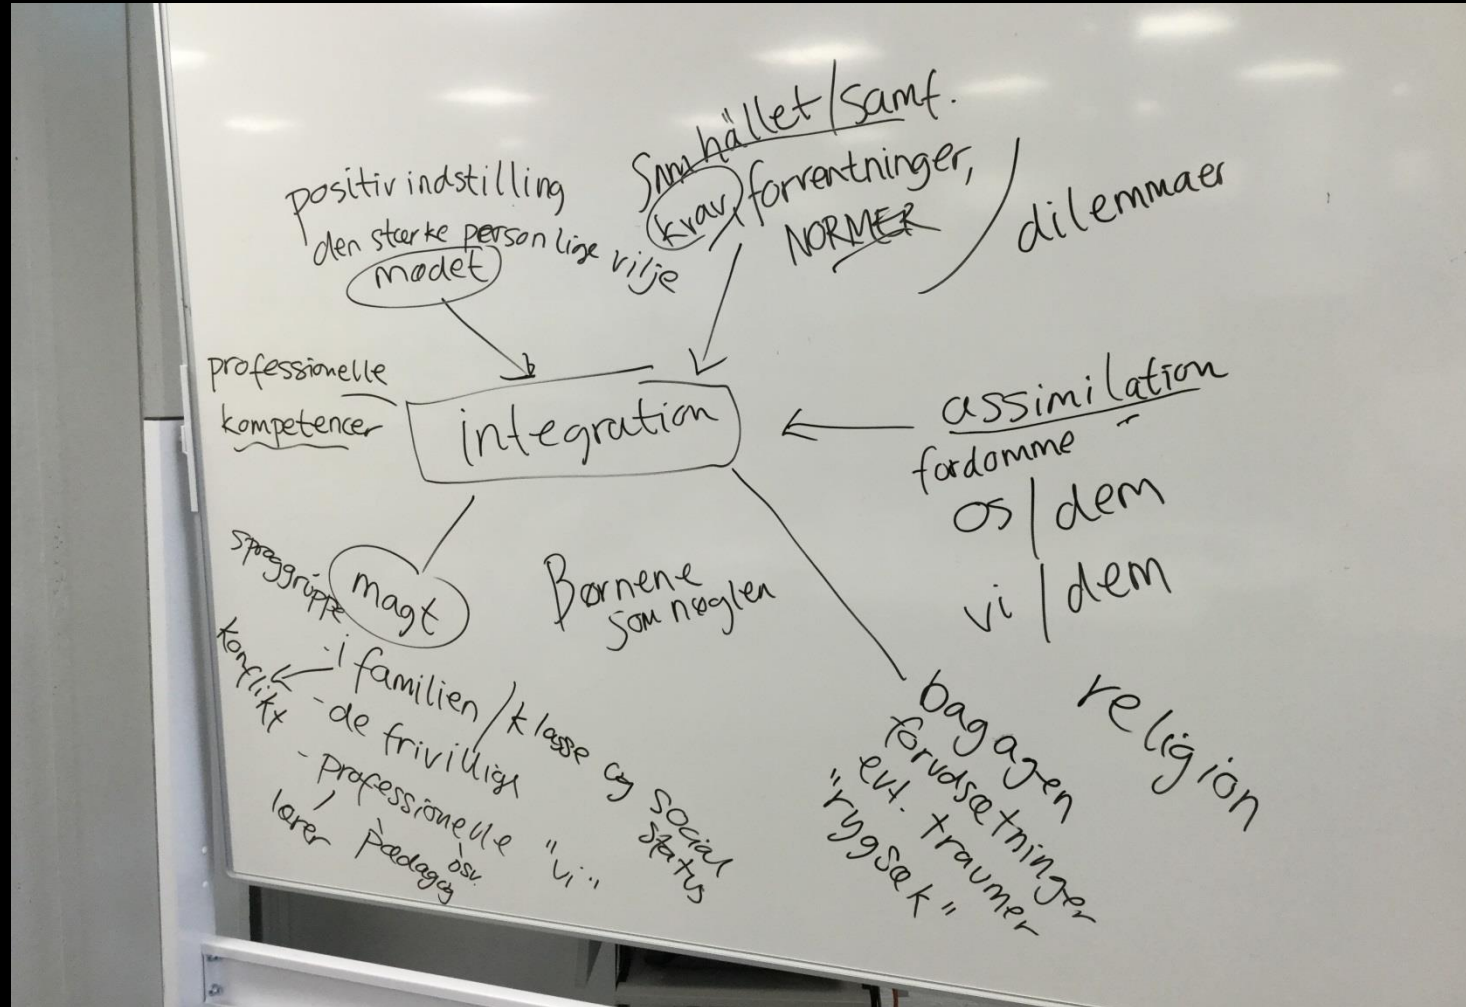 positiv indstilling
den stærke personlige vilje
mødet
Samhället/samf.
krav, forrentninger,
NORMER
dilemmaer
professionelle
kompetencer
integration
assimilation
fordomme
os/dem
vi/dem
religion
Børnene
som nøglen
magt
- i familien/klasse og social
status
konflikt
- de frivillige
- professionelle "vi"
lærer pædagog osv.
bagagen
forudsætninger
evt. traumer
"rygsæk"